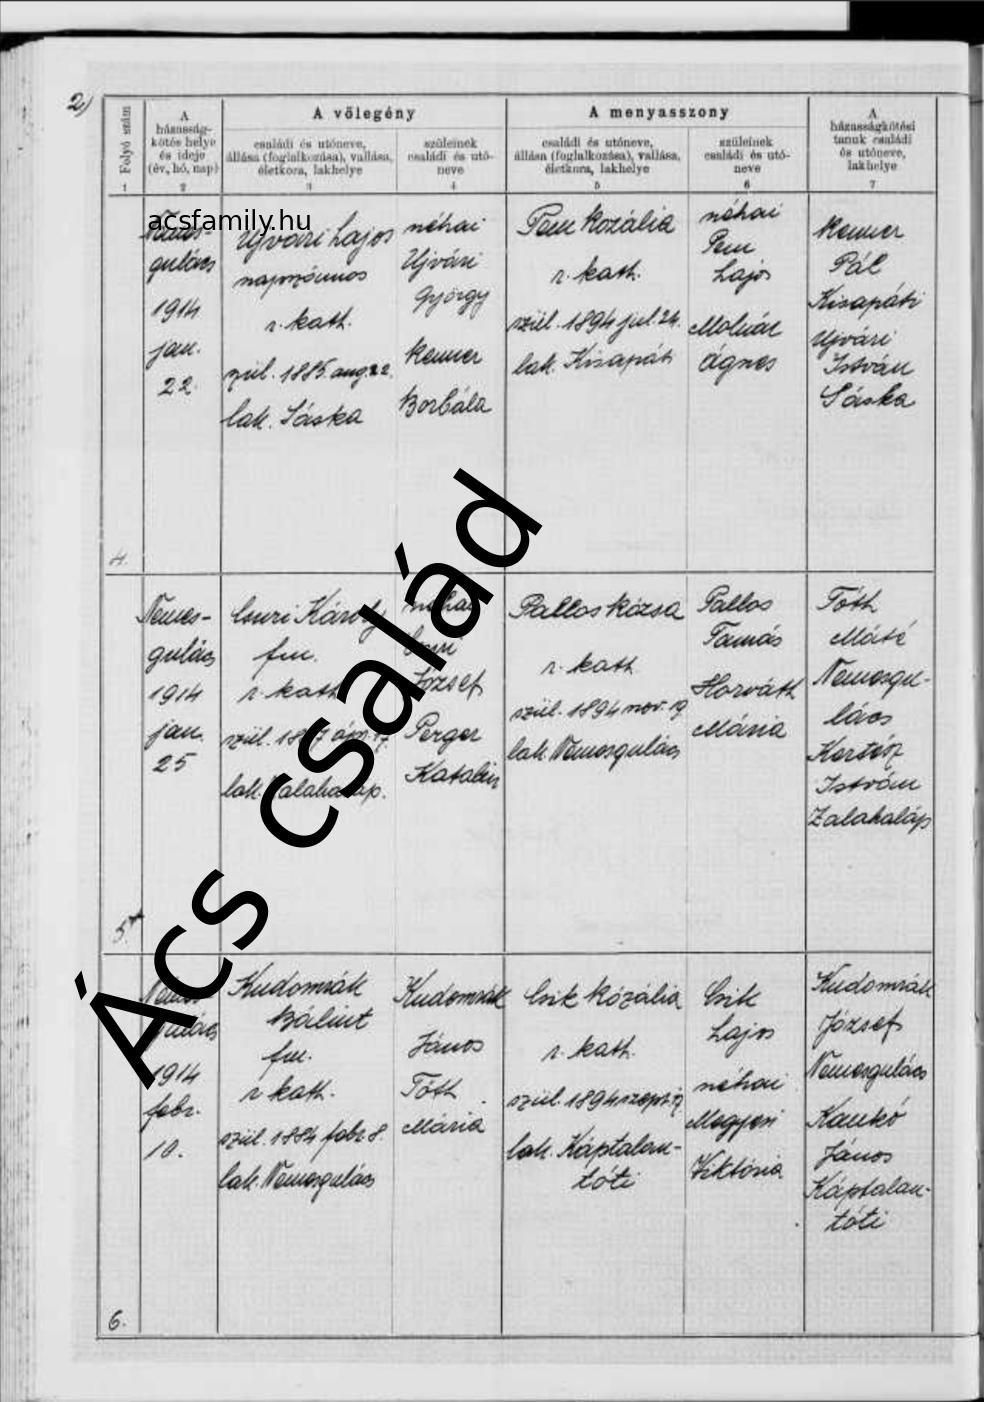 2)
Folyó szám
A házasság-kötés helye és ideje (év, hó, nap)
A vőlegény
családi és utóneve, állása (foglalkozása), vallása, életkora, lakhelye
szüleinek családi és utóneve
A menyasszony
családi és utóneve, állása (foglalkozása), vallása, életkora, lakhelye
szüleinek családi és utóneve
A házasságkötési tanuk családi és utóneve, lakhelye
1 2 3 4 5 6 7
acsfamily.hu
4.
gulács
1914
jan.
22.
Ujvári Lajos
napszámos
r. kath.
szül. 1885. aug 22.
lak. Sáska
néhai
Ujvári
György
Renner
Borbála
Pem Rozália
r. kath.
szül. 1894 jul. 24.
lak. Kisapáti
néhai
Pem
Lajos
Molnár
Ágnes
Renner
Pál
Kisapáti
Ujvári
István
Sáska
5.
Nemes-
gulács
1914
jan.
25
Csuri Károly
fm.
r. kath
szül.
lak. Zalahaláp.
néhai
Csuri
József
Perger
Katalin
Pallos Rózsa
r. kath
szül. 1894 nov. 19
lak. Nemesgulács
Pallos
Tamás
Horváth
Mária
Tóth
Máté
Nemesgu-
lács
Kertész
István
Zalahaláp
6.
Nemes
gulács
1914
febr.
10.
Kudomrák
Bálint
fm.
r. kath.
szül. 1884 febr 8.
lak. Nemesgulács
Kudomrák
János
Tóth
Mária
Csik Rozália
r. kath.
szül. 1894 szept.
lak. Káptalan-
tóti
Csik
Lajos
néhai
Megyesi
Viktória
Kudomrák
József
Nemesgulács
Kankó
János
Káptalan-
tóti
Ács család